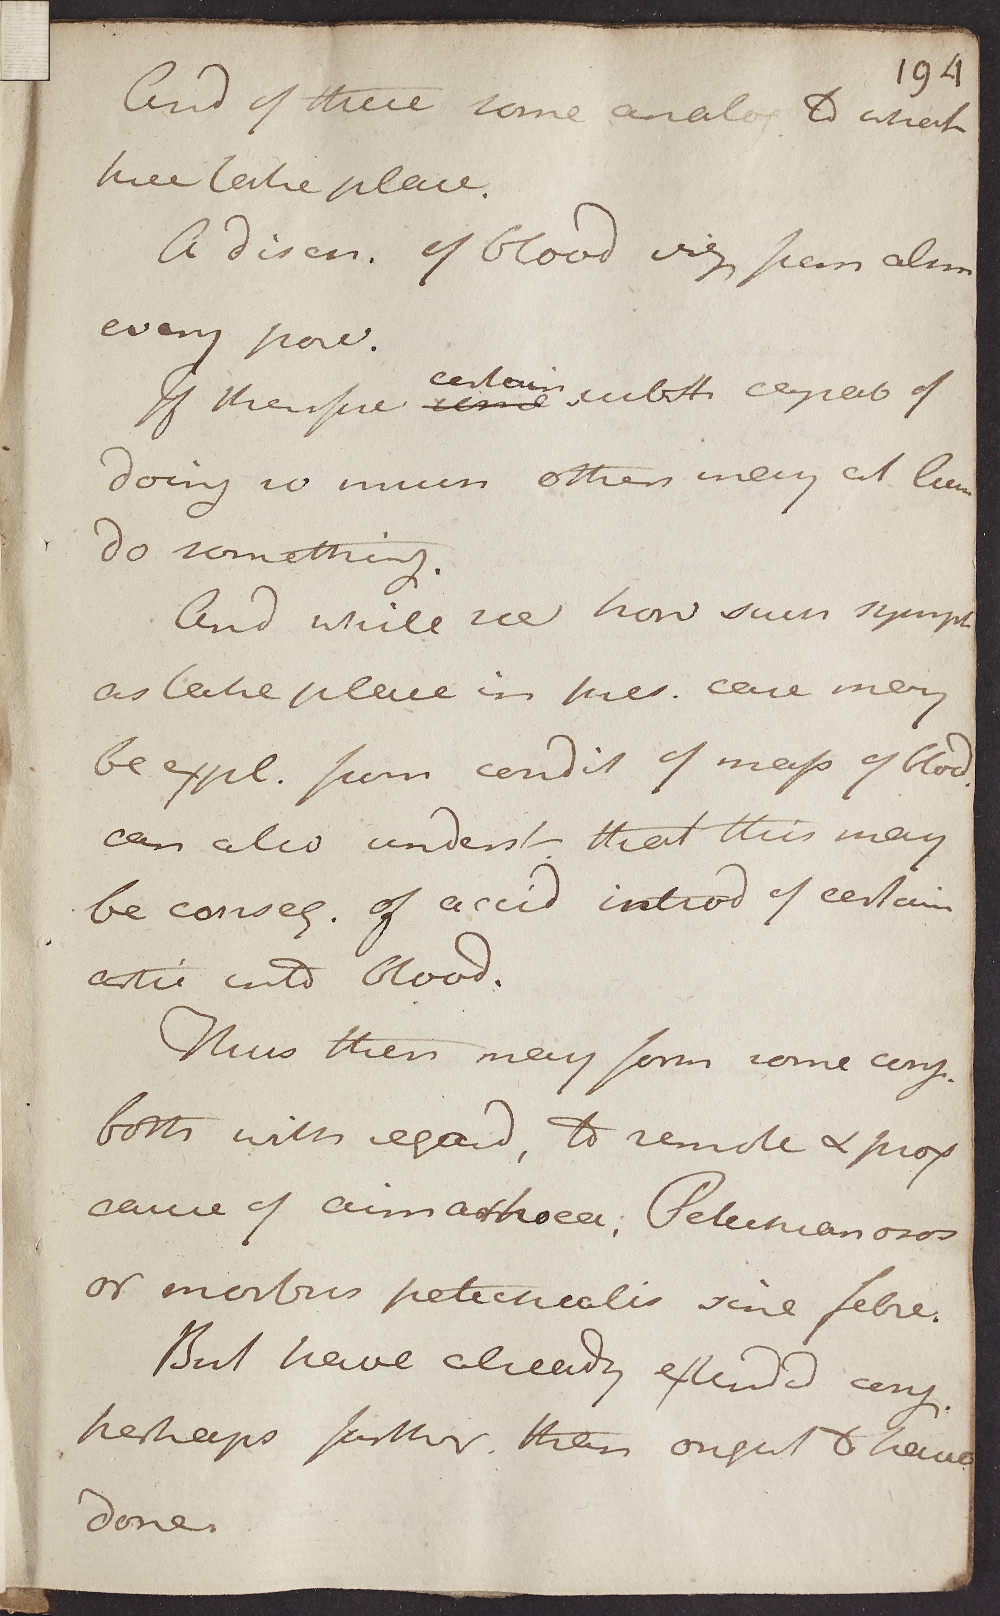 194
And of these some analog to what
here take place.
A disch. of blood viz from alm
every pore.
If therefore certain some substs capab of
doing so much others may at leas
do something.
And while see how such sympt
as take place in pres. case may
be expl. from condit of mass of blood.
can also underst. that this may
be conseq. of accid introd of certain
artic into blood.
Thus then may form some conj.
both with regard, to remote & prox
cause of aimorrhoea; Petechianosos
or morbus petechealis sine febre.
But have already extendd conj.
perhaps further than ought to have
done.